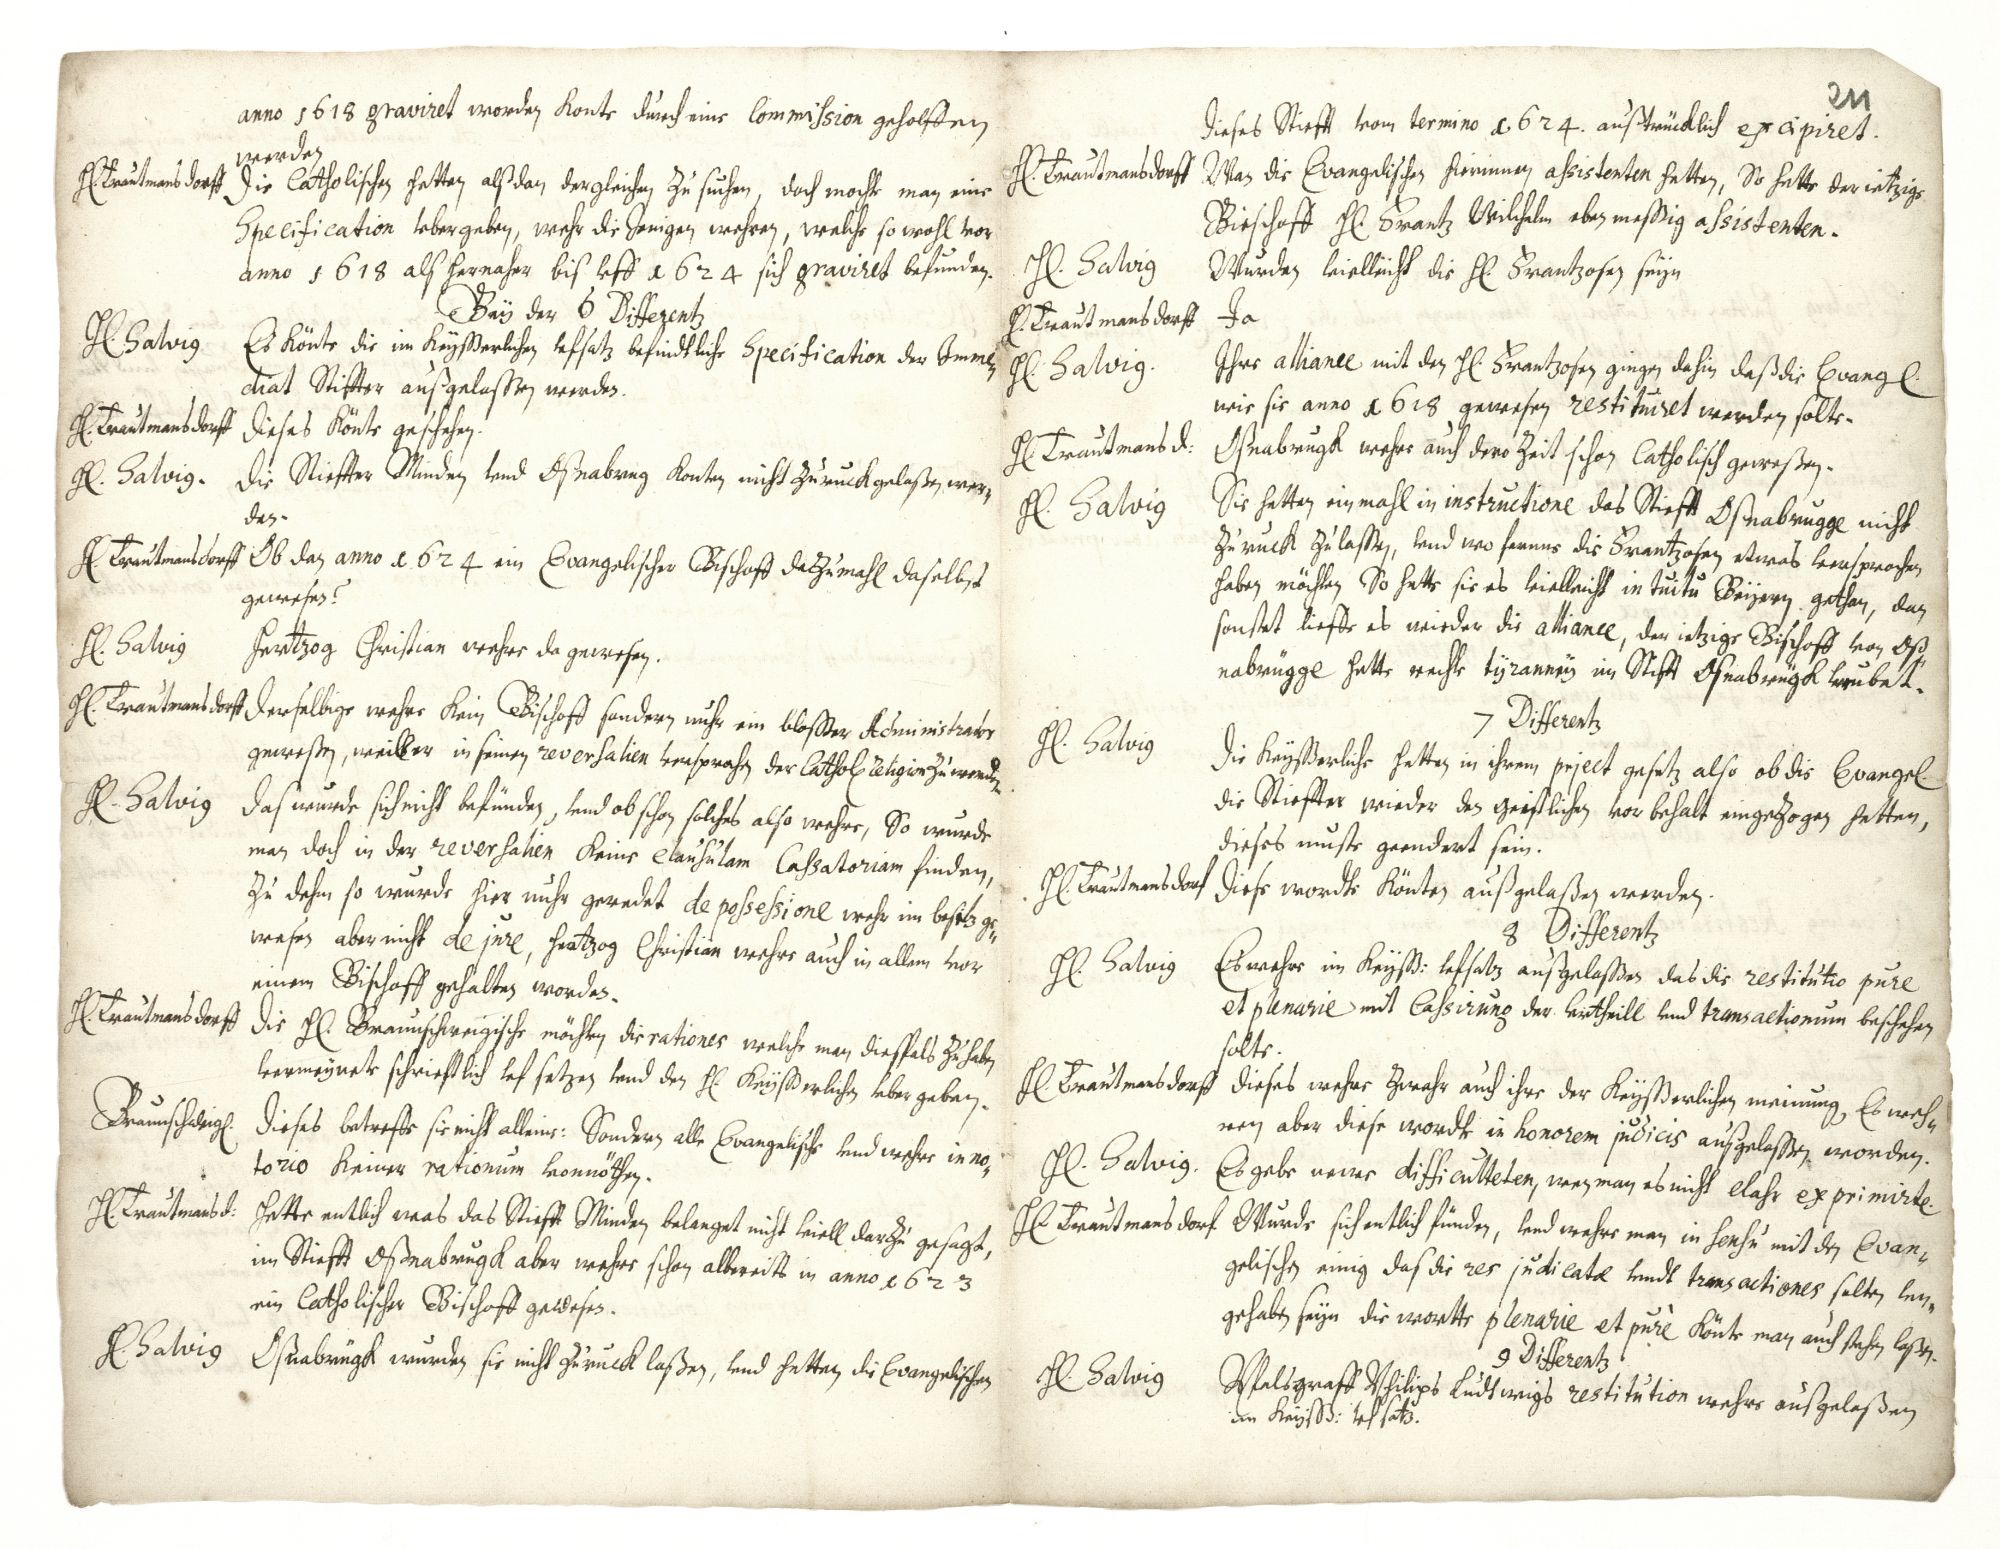 anno 1618 graviret worden konte durch eine Commission geholffen
werden
H. Trautmansdorff Die Catholischen hetten alßdan dergleichen zu suchen, doch mochte man eine
Specification ubergeben, wehr die Jenigen wehren, welche so wohl vor
anno 1618 alß hernaher bis uff 1624 sich graviret befunden.
Bey der 6 Differentz
H. Salvig Es könte die im Keyßerlichen ufsatz befindtliche Specification der Imme-
diat Stiffter außgelaßen werden.
H. Trautmansdorff Dieses könte geschehen.
H. Salvig. Die Stieffter Minden und Oßnabrug konten nicht zuruckgelaßen wer-
den.
H Trautmansdorff Ob dan anno 1624 ein Evangelischer Bischoff dazumahl daselbst
gewesen?
H. Salvig Hertzog Christian wehre da gewesen.
H. Trautmansdorff Derselbige wehre kein Bischoff sondern nuhr ein bloßer Administrator
geweßen, weill er in seinen reversalien versprochen der Cathol religion zu werden
H. Salvig Das wurde sich nicht befünden, und ob schon solches also wehre, So wurde
man doch in der reversalien keine clausulam Cassatoriam finden,
Zu dehm so wurde hier nuhr geredet de possessione wehr im besitz ge-
wesen aber nicht de jure, Hertzog Christian wehre auch in allem vor
einem Bischoff gehalten worden.
H. Trautmansdorff Die H. Braunschweigische möchten die rationes welche man dießfals zu haben
vermeynete schriefftlich uf setzen und den H. Keyßerlichen ubergeben.
Braunschweigl. Dieses betreffe sie nicht alleine: Sondern alle Evangelische und wehre in no-
torio keiner rationum vonnöthen.
H. Trautmansd: Hette entlich was das Stiefft Minden belanget nicht viell darzu gesagt,
im Stiefft Oßnabrugk aber wehre schon albereits in anno 1623
ein Catholischer Bischoff gewesen.
H. Salvig Oßnabrügk wurden sie nicht zuruck laßen, und hetten die Evangelischen
211
dieses Stiefft vom termino 1624. außtrücklich excipiret.
H. Trautmansdorff Wan die Evangelischen hierinnen assistenten hetten, So hette der ietzige
Bieschoff H. Frantz Wilhelm eben meßig assistenten.
H. Salvig Wurden vielleicht die H. Frantzosen seyn
H. Trautmansdorff Ja
H. Salvig. Ihre alliance mit den H. Frantzosen gingen dahin daß die Evangl.
wie sie anno 1618 gewesen restituiret werden solte.
H. Trautmansd: Oßnabrugk wehre auch dero Zeit schon Catholisch geweßen.
H. Salvig Sie hetten einmahl in instructione das Stiefft Oßnabrugge nicht
zuruck zulaßen, und wo ferne die Frantzosen etwas versprochen
haben möchten So hette sie es vielleicht intuitu Beyern gethan, dan
sonstet lieffe es wieder die alliance, der ietzige Bischoff von Oß-
nabrügge hette rechte tyranney im Stifft Oßnabrügk verubet.
7 Differentz
H. Salvig Die Keyßerliche hetten in ihrem project gesetz also ob die Evangel
die Stieffter wieder den geistlichen vorbehalt eingezogen hetten,
dieses muste geendert sein.
H. Trautmansdorf Diese wordte könten außgelaßen werden.
8 Differentz
H. Salvig Es wehre im Keyß: ufsatz außgelaßen das die restitutio pure
et plenarie mit Cassirung der Urtheill und transactionum beschehen
solte.
H. Trautmansdorff Dieses wehre zwahr auch ihre der Keyßerlichen meinung, Es weh-
ren aber diese wordte in honorem judicis außgelaßen worden.
H. Salvig. Es gebe newe difficulteten, wen man es nicht clahr exprimirte.
H Trautmansdorf Wurde sich entlich fünden, und wehre man in sensu mit den Evan-
gelischen einig das die res judicatae undt transactiones solten un-
gehaben seyn die wortte plenarie et pure könte man auch stehen laßen.
9 Differentz
H. Salvig Pfalsgraff Philips Ludtwigs restitution wehre außgelaßen
im Keyß: ufsatz.